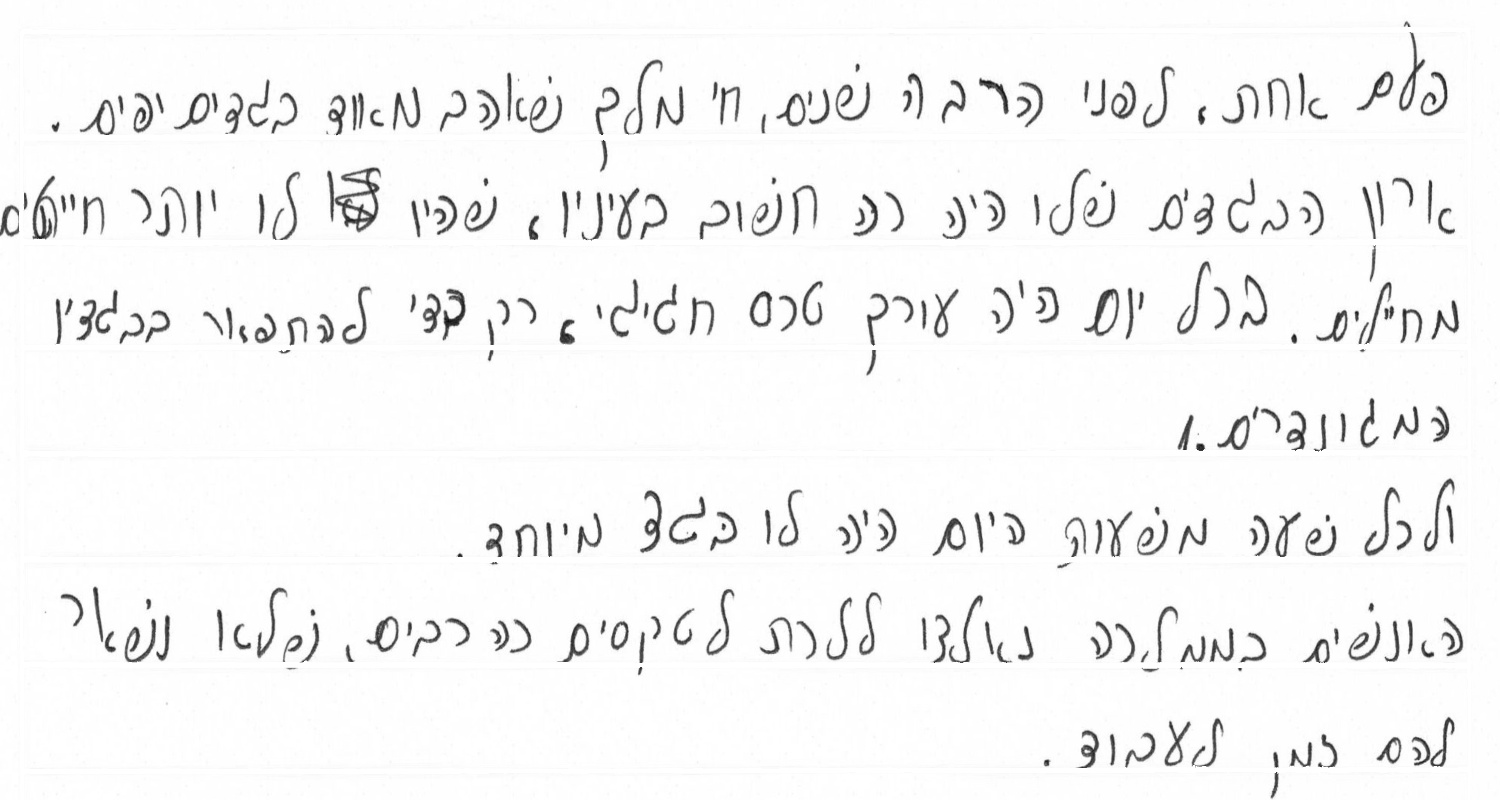 פעם אחת, לפני הרבה שנים, חי מלך שאהב מאוד בגדים יפים.
ארון הבגדים שלו היה כה חשוב בעיניו, שהיו לו יותר חייטים
מחיילים. בכל יום היה עורך טכס חגיגי, רק כדי להתפאר בבגדיו
המגונדרים.
ולכל שעה משעות היום היה לו בגד מיוחד.
האנשים בממלכה נאלצו ללכת לטקסים כה רבים, שלא נשאר
להם זמן לעבוד.